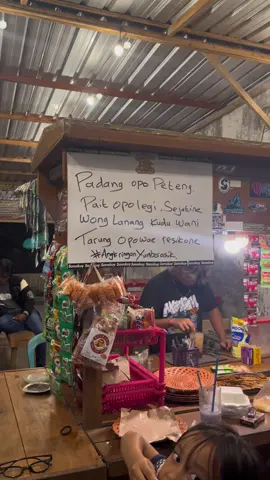 Padang opo Peteng
Pait opo legi, Sejatine
Wong Lanang Kudu Wani
Tarung opowae resikone
#AngkringanYunborasik